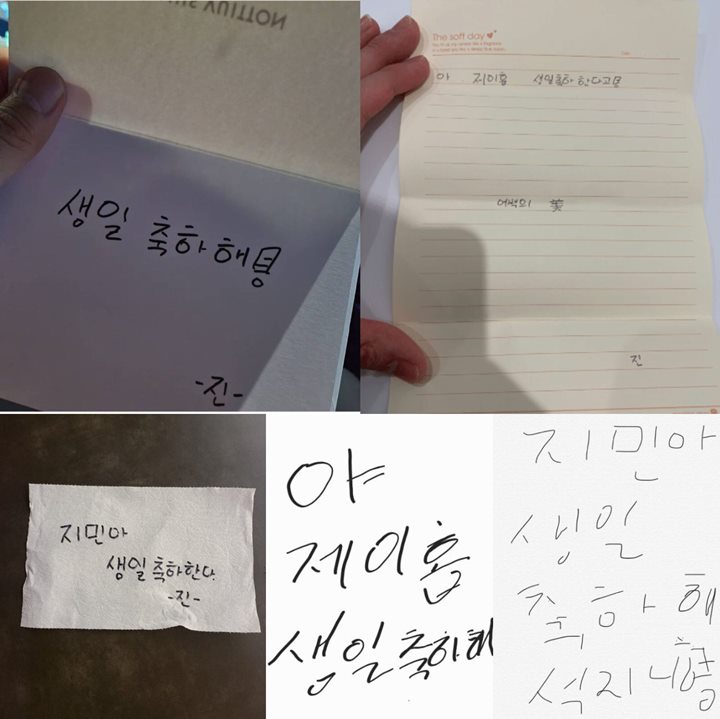 VUITTON
생일
-진-
The soft day
지이홉
여백의 美
진
지민아
생일 축하한다.
-진-
야
제이홉
생일 축하해
지민아
생일
축하해
석지니형